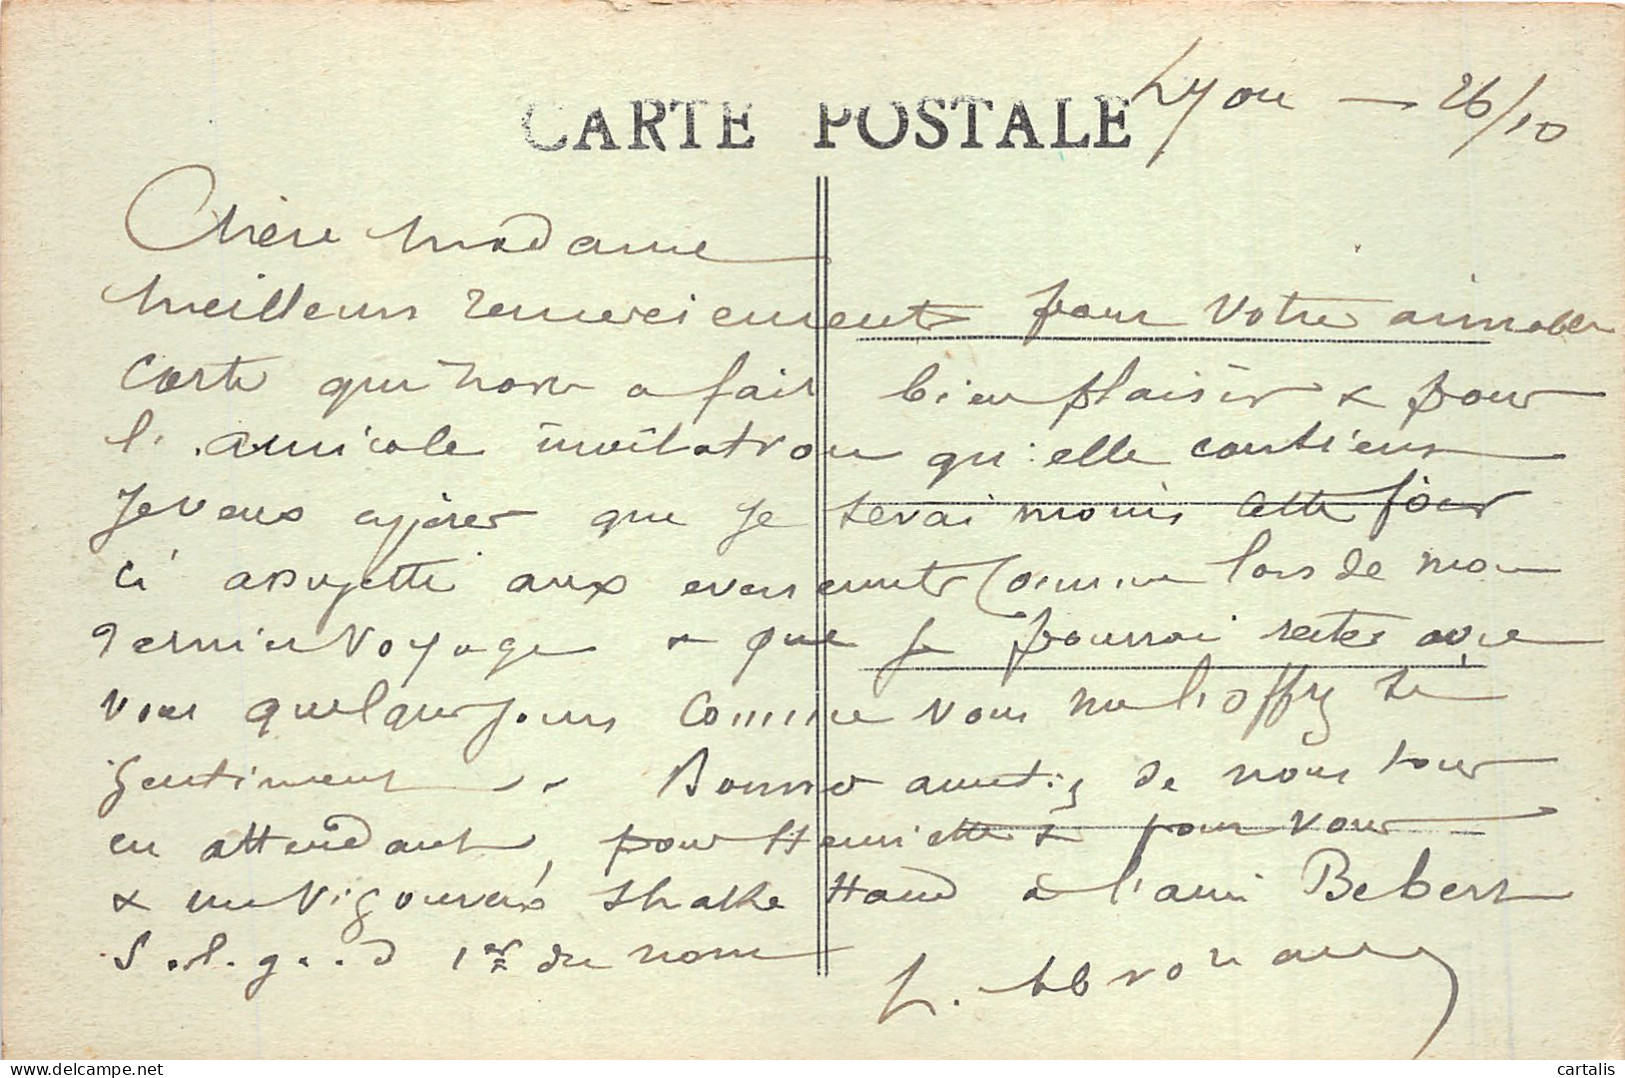 CARTE POSTALE
Lyon — 26/10
Chère Madame
Meilleurs remerciements pour votre aimable
carte qui nous a fait bien plaisir & pour
l'amicale invitation qu'elle contient
Je veux espérer que je serai moins cette fois
ci assujetti aux evenements comme lors de mon
dernier voyage & que je pourrai rester avec
vous quelques jours comme vous me l'offrez si
gentiment. Bonnes amitiés de nous tous
en attendant, pour Henriette & pour vous
& un vigoureux shake Hand à l'ami Bebert
S.l.g...d 1er du nom
L.
delcampe.net
cartalis